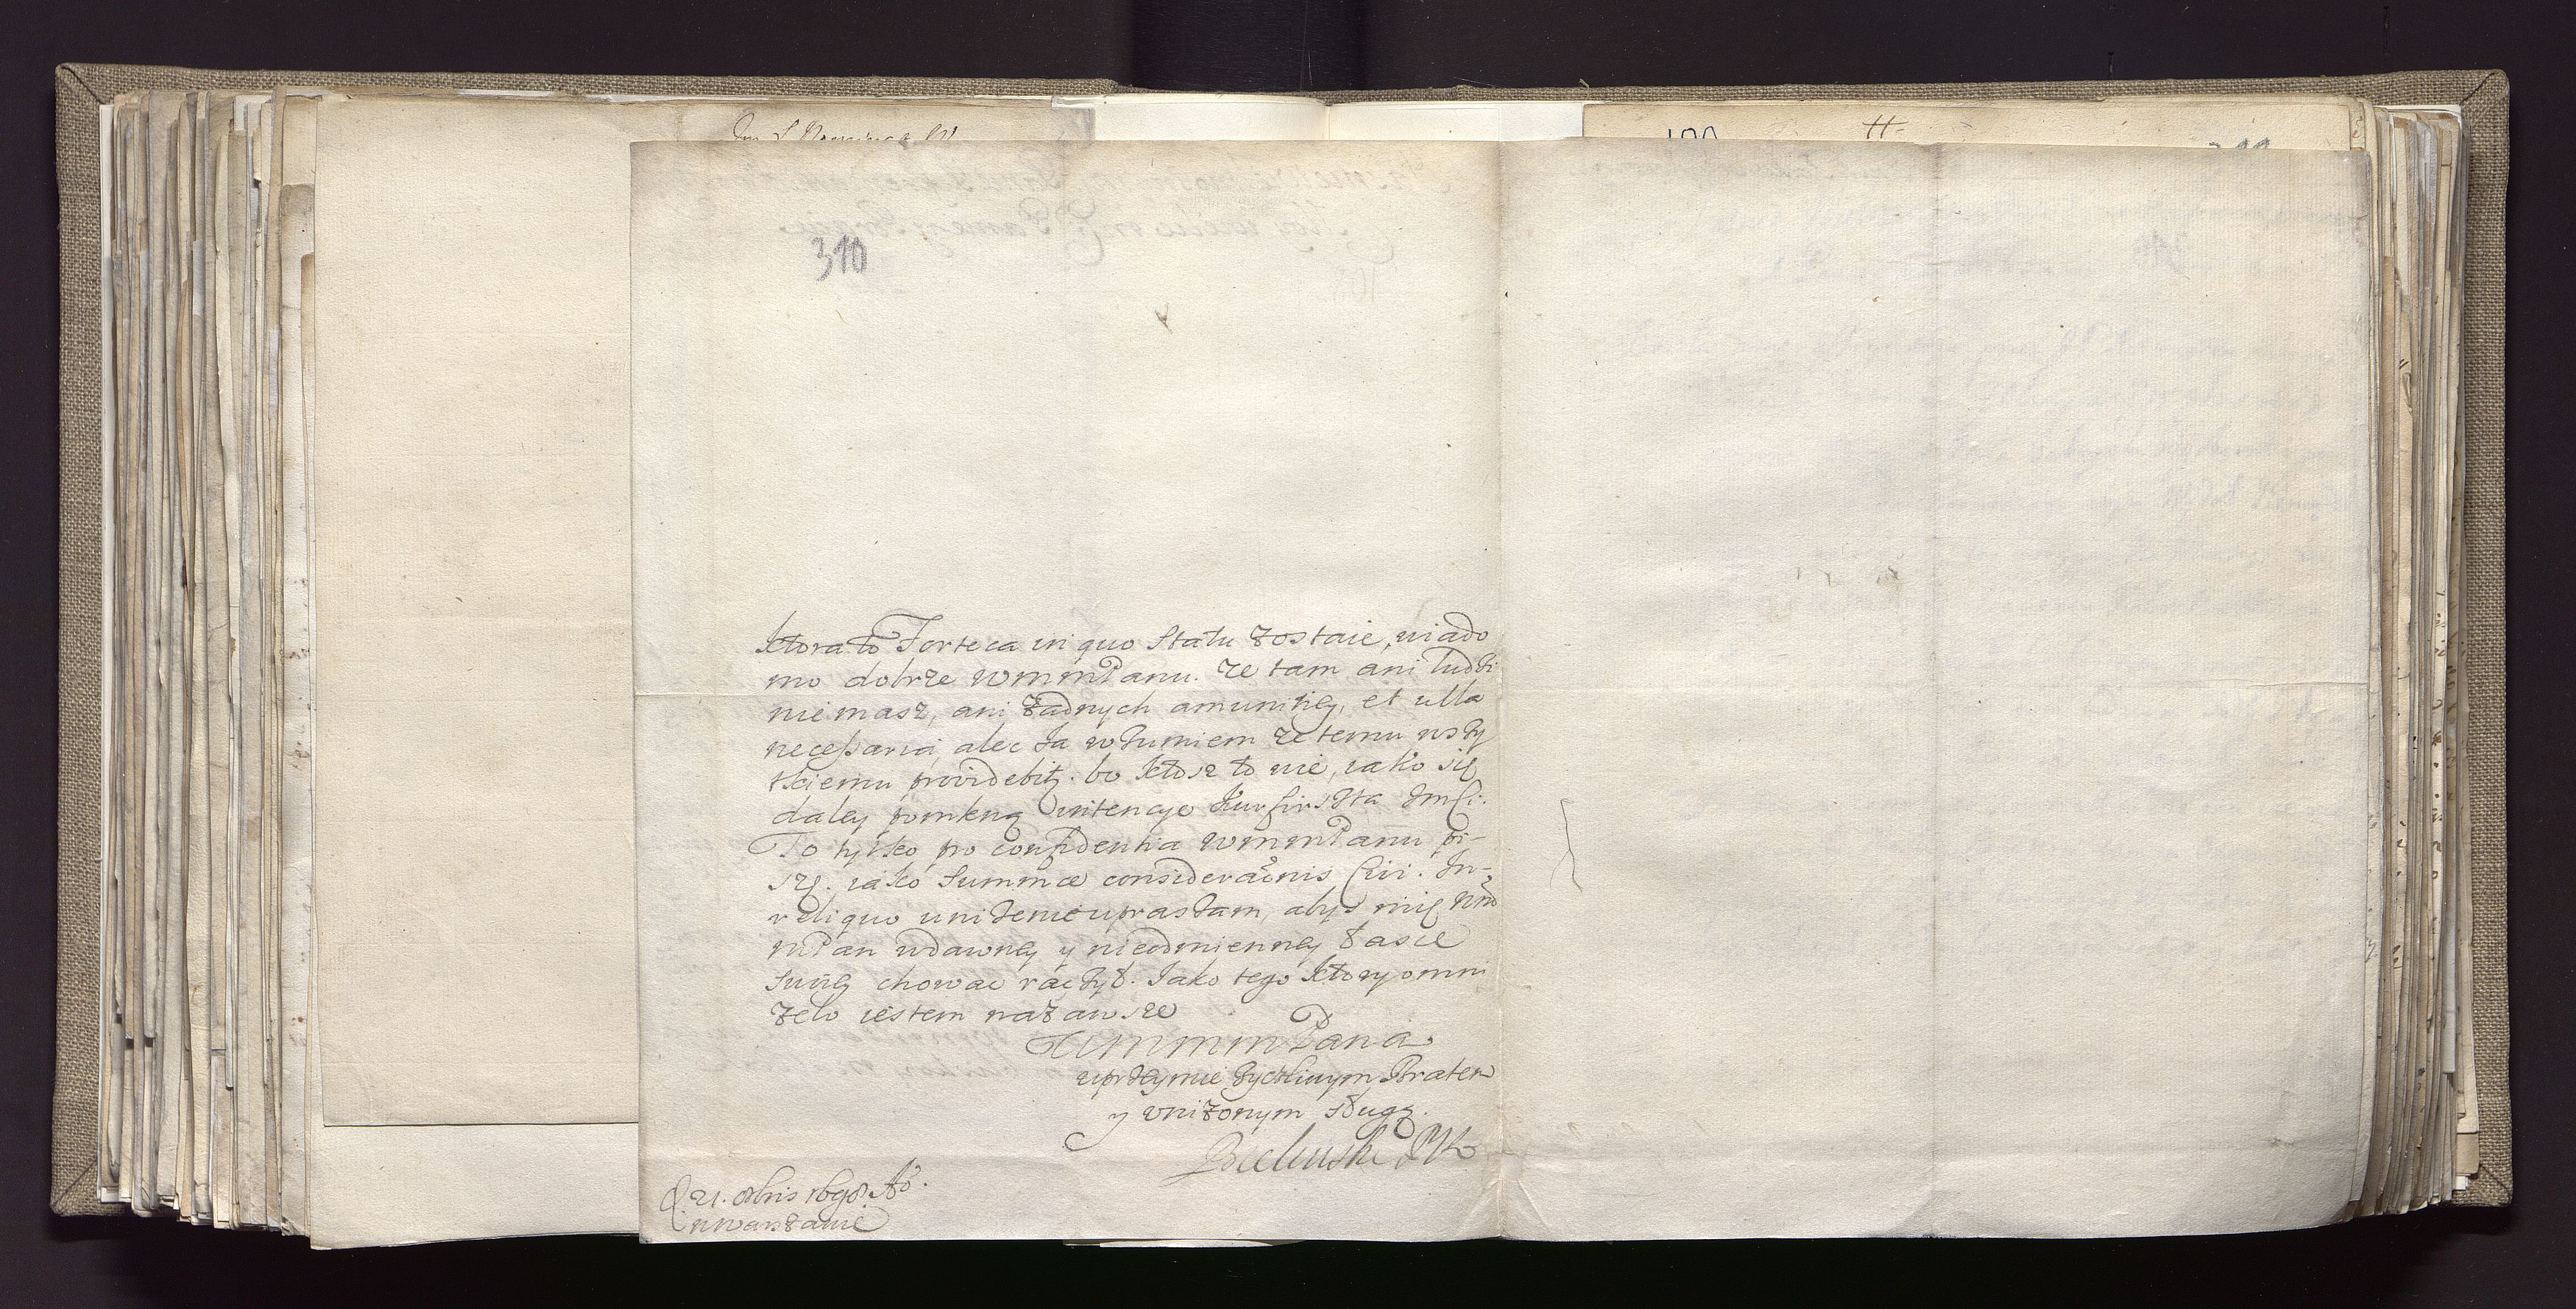 310
ktora to Forteca in quo Statu zostaie, wiado
mo dobrze WMMPanu. ze tam ani ludzi
nie masz, ani zadnych amunitiey, et ulla
necessaria, alec Ja rozumiem ze temu wszy
tkiemu providebit. bo ktosz to wie, iako się
daley pomkną intencye Kurfirszta Jmci.
To tylko pro confidentia WMMPanu pi-
szę. iako Summæ consideraonis Civi. In
reliquo unizenie upraszam, abys mię WM
MPan w dawney y nieodmienney Łasce
Swey chowac raczył. Jako tego ktory omni
zelo iestem na zawsze
WMMMPana
uprzeymie życzliwym Bratem
y vnizonym sługą.
Bielinski MK
D. 21. 8bris 1698 A⁰.
w Warszawie